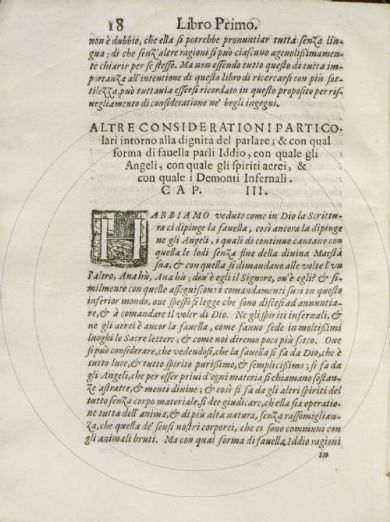 18 Libro Primo.
non è dubbio, che ella si potrebbe pronuntiar tutta senza lin-
gua; di che senz'altre ragioni si può ciascuno ageuolissimamen-
te chiarir per se stesso. Ma non essendo tutto questo di tutta im-
portanza all'intentione di questo libro di ricercarsi con più sot-
tilezza, può tuttauia essersi ricordato in questo proposito per ris-
uegliamento di consideratione ne' begli ingegni.
ALTRE CONSIDERATIONI PARTICO-
lari intorno alla dignità del parlare; & con qual
forma di fauella parli Iddio, con quale gli
Angeli, con quale gli spiriti aerei, &
con quale i Demonii Infernali.
CAP. III.
HABBIAMO veduto come in Dio la Scrittu-
ra ci dipinge la fauella, così ancora la dipinge
ne gli Angeli, i quali di continuo cantano con
quella le lodi senza fine della diuina Maestà
sua, & con quella si dimandano alle volte l'vn
l'altro, Ana hù, Ana hù, dou'è egli il Signore, ou'è egli? & si-
milmente con quelle asseguiscono i comandamenti suoi in questo
inferior mondo, oue spesso si legge che sono discesi ad annuntia-
re, & à comandare il voler di Dio. Ne gli spiriti infernali, &
ne gli aerei è ancor la fauella, come fanno fede in moltissimi
luoghi le Sacre lettere; & come noi diremo poco più sotto. Oue
si può considerare, che vedendosi, che la fauella si fa da Dio, che è
tutto luce, & tutto spirito purissimo, & semplicissimo; si fa da
gli Angeli, che per esser priui d'ogni materia si chiamano sostan-
ze astratte, & menti diuine; & così si fa da gli altri spiriti del
tutto senza corpo materiale, si dee giudicare, ch'ella sia operatio-
ne tutta dell'anima, & di più alta natura, senza rassomiglian-
za, che quella de' sensi nostri corporei, che ci sono communi con
gli animali bruti. Ma con qual forma di fauella Iddio ragioni